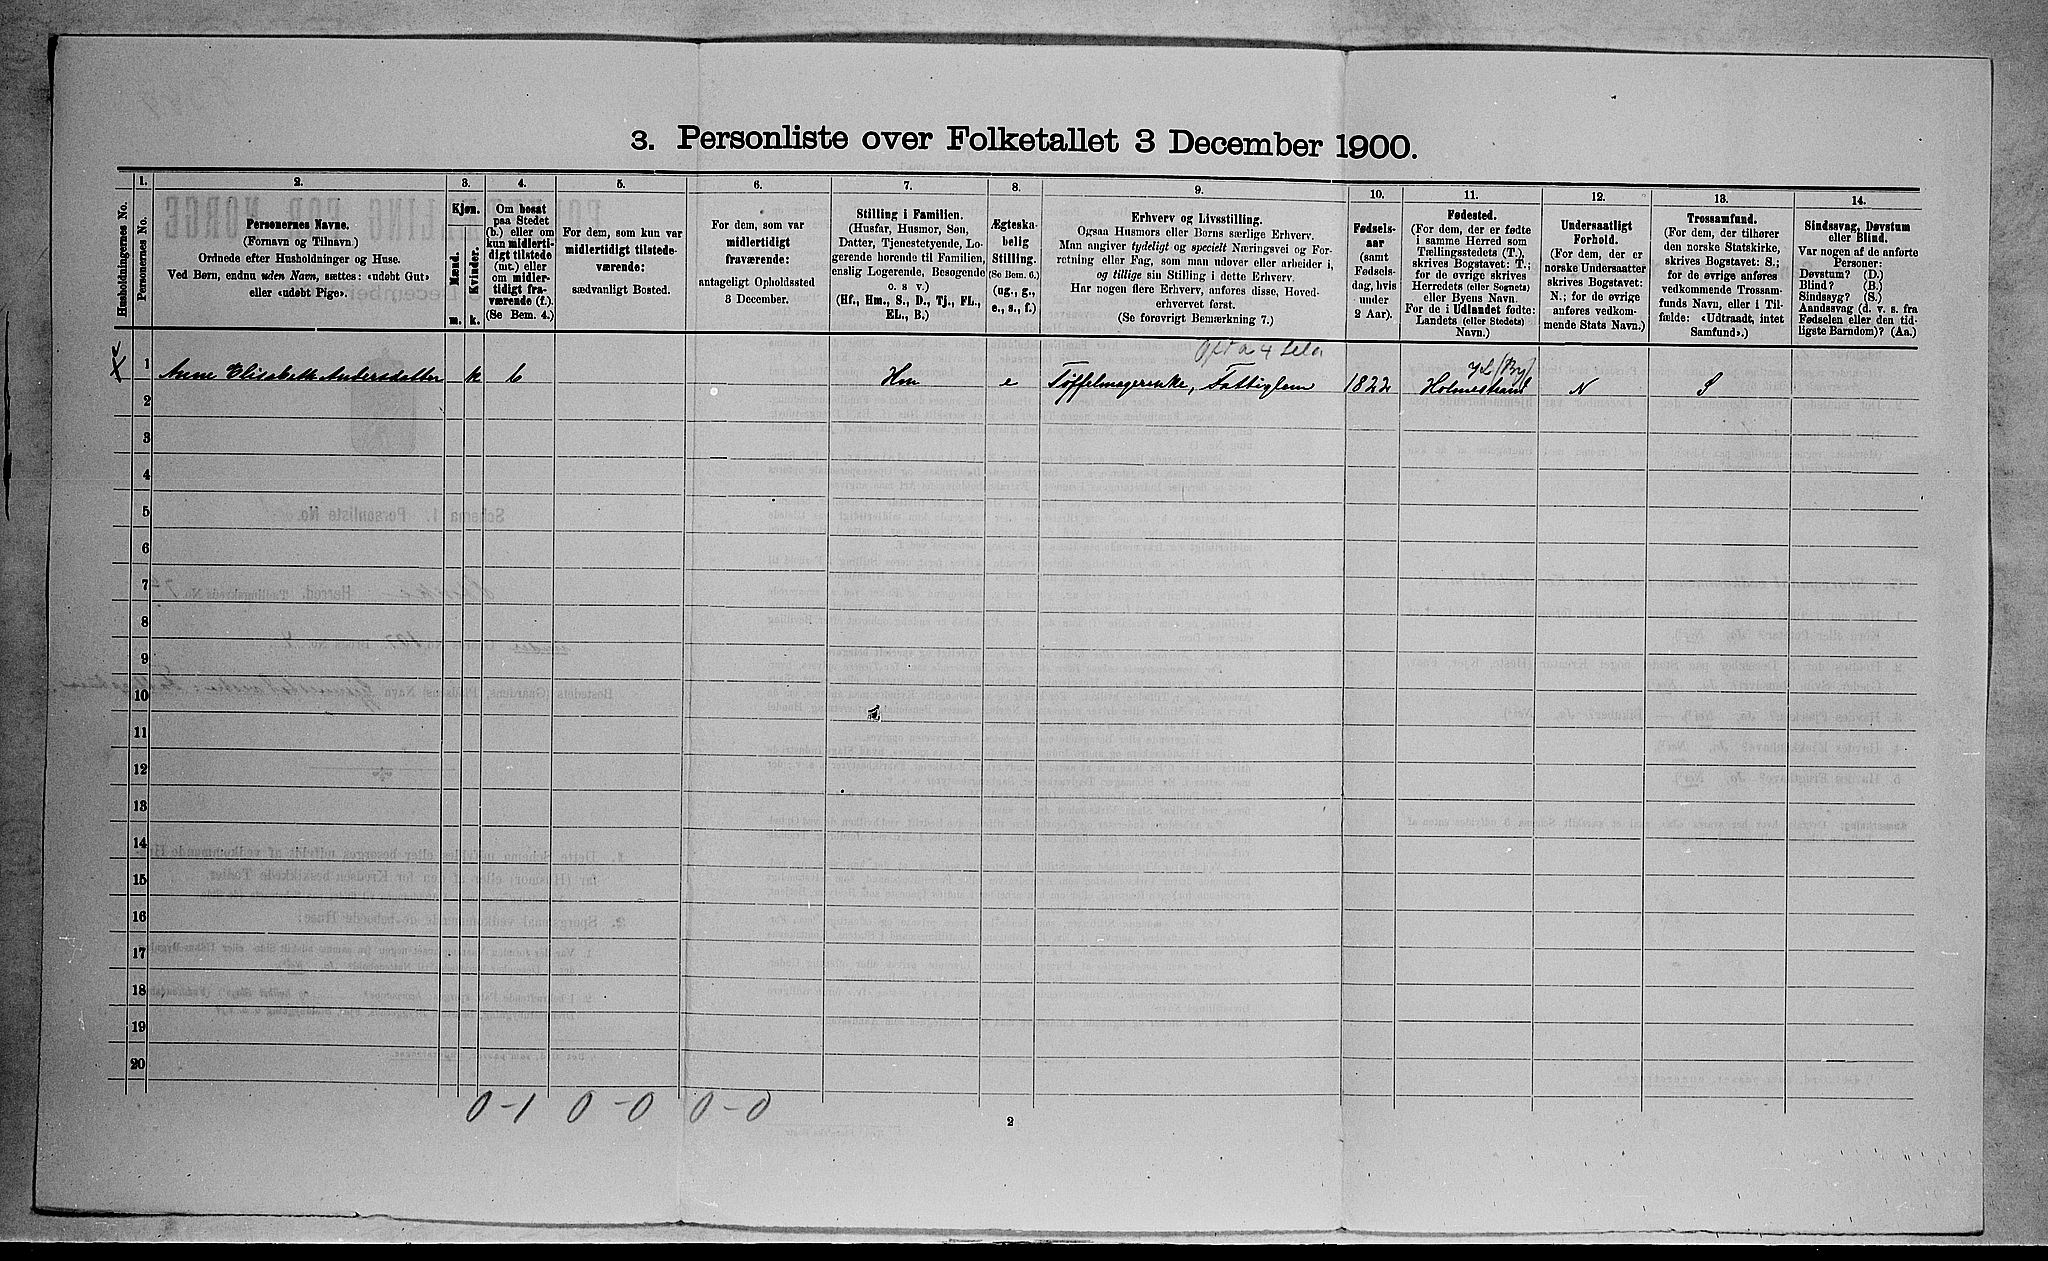 3. Personliste over Folketallet 3 December 1900.
Husholdningernes No.
1.
Personernes No.
2.
Personernes Navne.
(Fornavn og Tilnavn.)
Ordnede efter Husholdninger og Huse.
Ved Børn, endnu uden Navn, sættes: «udøbt Gut»
eller «udøbt Pige».
3.
Kjøn.
Mænd.
Kvinder.
m.
k.
4.
Om bosat
paa Stedet
(b.) eller om
kun midlerti-
digt tilstede
(mt.) eller
om midler-
tidigt fra-
værende (f.).
(Se Bem. 4.)
5.
For dem, som kun var
midlertidigt tilstede-
værende:
sædvanligt Bosted.
6.
For dem, som var
midlertidigt
fraværende:
antageligt Opholdssted
3 December.
7.
Stilling i Familien.
(Husfar, Husmor, Søn,
Datter, Tjenestetyende, Lo-
gerende hørende til Familien,
enslig Logerende, Besøgende
o. s v.)
(Hf., Hm., S., D., Tj., FL.,
EL., B.)
8.
Ægteska-
belig
Stilling.
(Se Bem. 6.)
(ug., g.,
e., s., f.)
9.
Erhverv og Livsstilling.
Ogsaa Husmors eller Børns særlige Erhverv.
Man angiver tydeligt og specielt Næringsvei og For-
retning eller Fag, som man udover eller arbeider i,
og tillige sin Stilling i dette Erhverv.
Har nogen flere Erhverv, anføres disse, Hoved-
erhvervet først.
(Se forøvrigt Bemærkning 7.)
10.
Fødsels-
aar
(samt
Fødsels-
dag, hvis
under
2 Aar).
11.
Fødested.
(For dem, der er fødte
i samme Herred som
Tællingsstedets (T.),
skrives Bogstavet: T.;
for de øvrige skrives
Herredets (eller Sognets)
eller Byens Navn.
For de i Udlandet fødte:
Landets (eller Stedets)
Navn.)
12.
Undersaatligt
Forhold.
(For dem, der er
norske Undersaatter
skrives Bogstavet:
N.; for de øvrige
anføres vedkom-
mende Stats Navn.)
13.
Trossamfund.
(For dem, der tilhører
den norske Statskirke,
skrives Bogstavet: S.;
for de øvrige anføres
vedkommende Trossam-
funds Navn, eller i Til-
fælde: «Udtraadt, intet
Samfund».)
14.
Sindssvag, Døvstum
eller Blind.
Var nogen af de anførte
Personer:
Døvstum? (D.)
Blind? (B.)
Sindssyg? (S.)
Aandssvag (d. v. s. fra
Fødselen eller den tid-
ligste Barndom)? (Aa.)
1 Anne Elisabeth Andersdatter k b Hm e Tøffelmagerenke, Fattiglem 1822 Holmestrand (By) N S
2
3
4
5
6
7
8
9
10
11
12
13
14
15
16
17
18
19
20
0-1 0-0 0-0
2